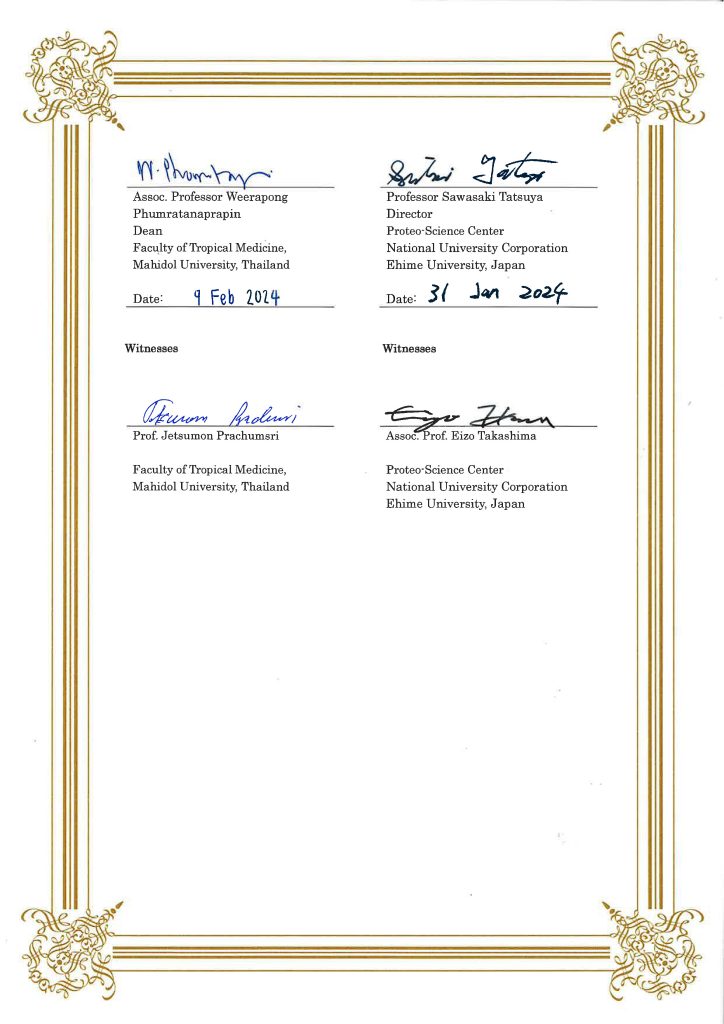 W. Phumratanap
Assoc. Professor Weerapong
Phumratanaprapin
Dean
Faculty of Tropical Medicine,
Mahidol University, Thailand
Date: 9 Feb 2024
Witnesses
Prof. Jetsumon Prachumsri
Faculty of Tropical Medicine,
Mahidol University, Thailand
Professor Sawasaki Tatsuya
Director
Proteo-Science Center
National University Corporation
Ehime University, Japan
Date: 31 Jan 2024
Witnesses
Assoc. Prof. Eizo Takashima
Proteo-Science Center
National University Corporation
Ehime University, Japan